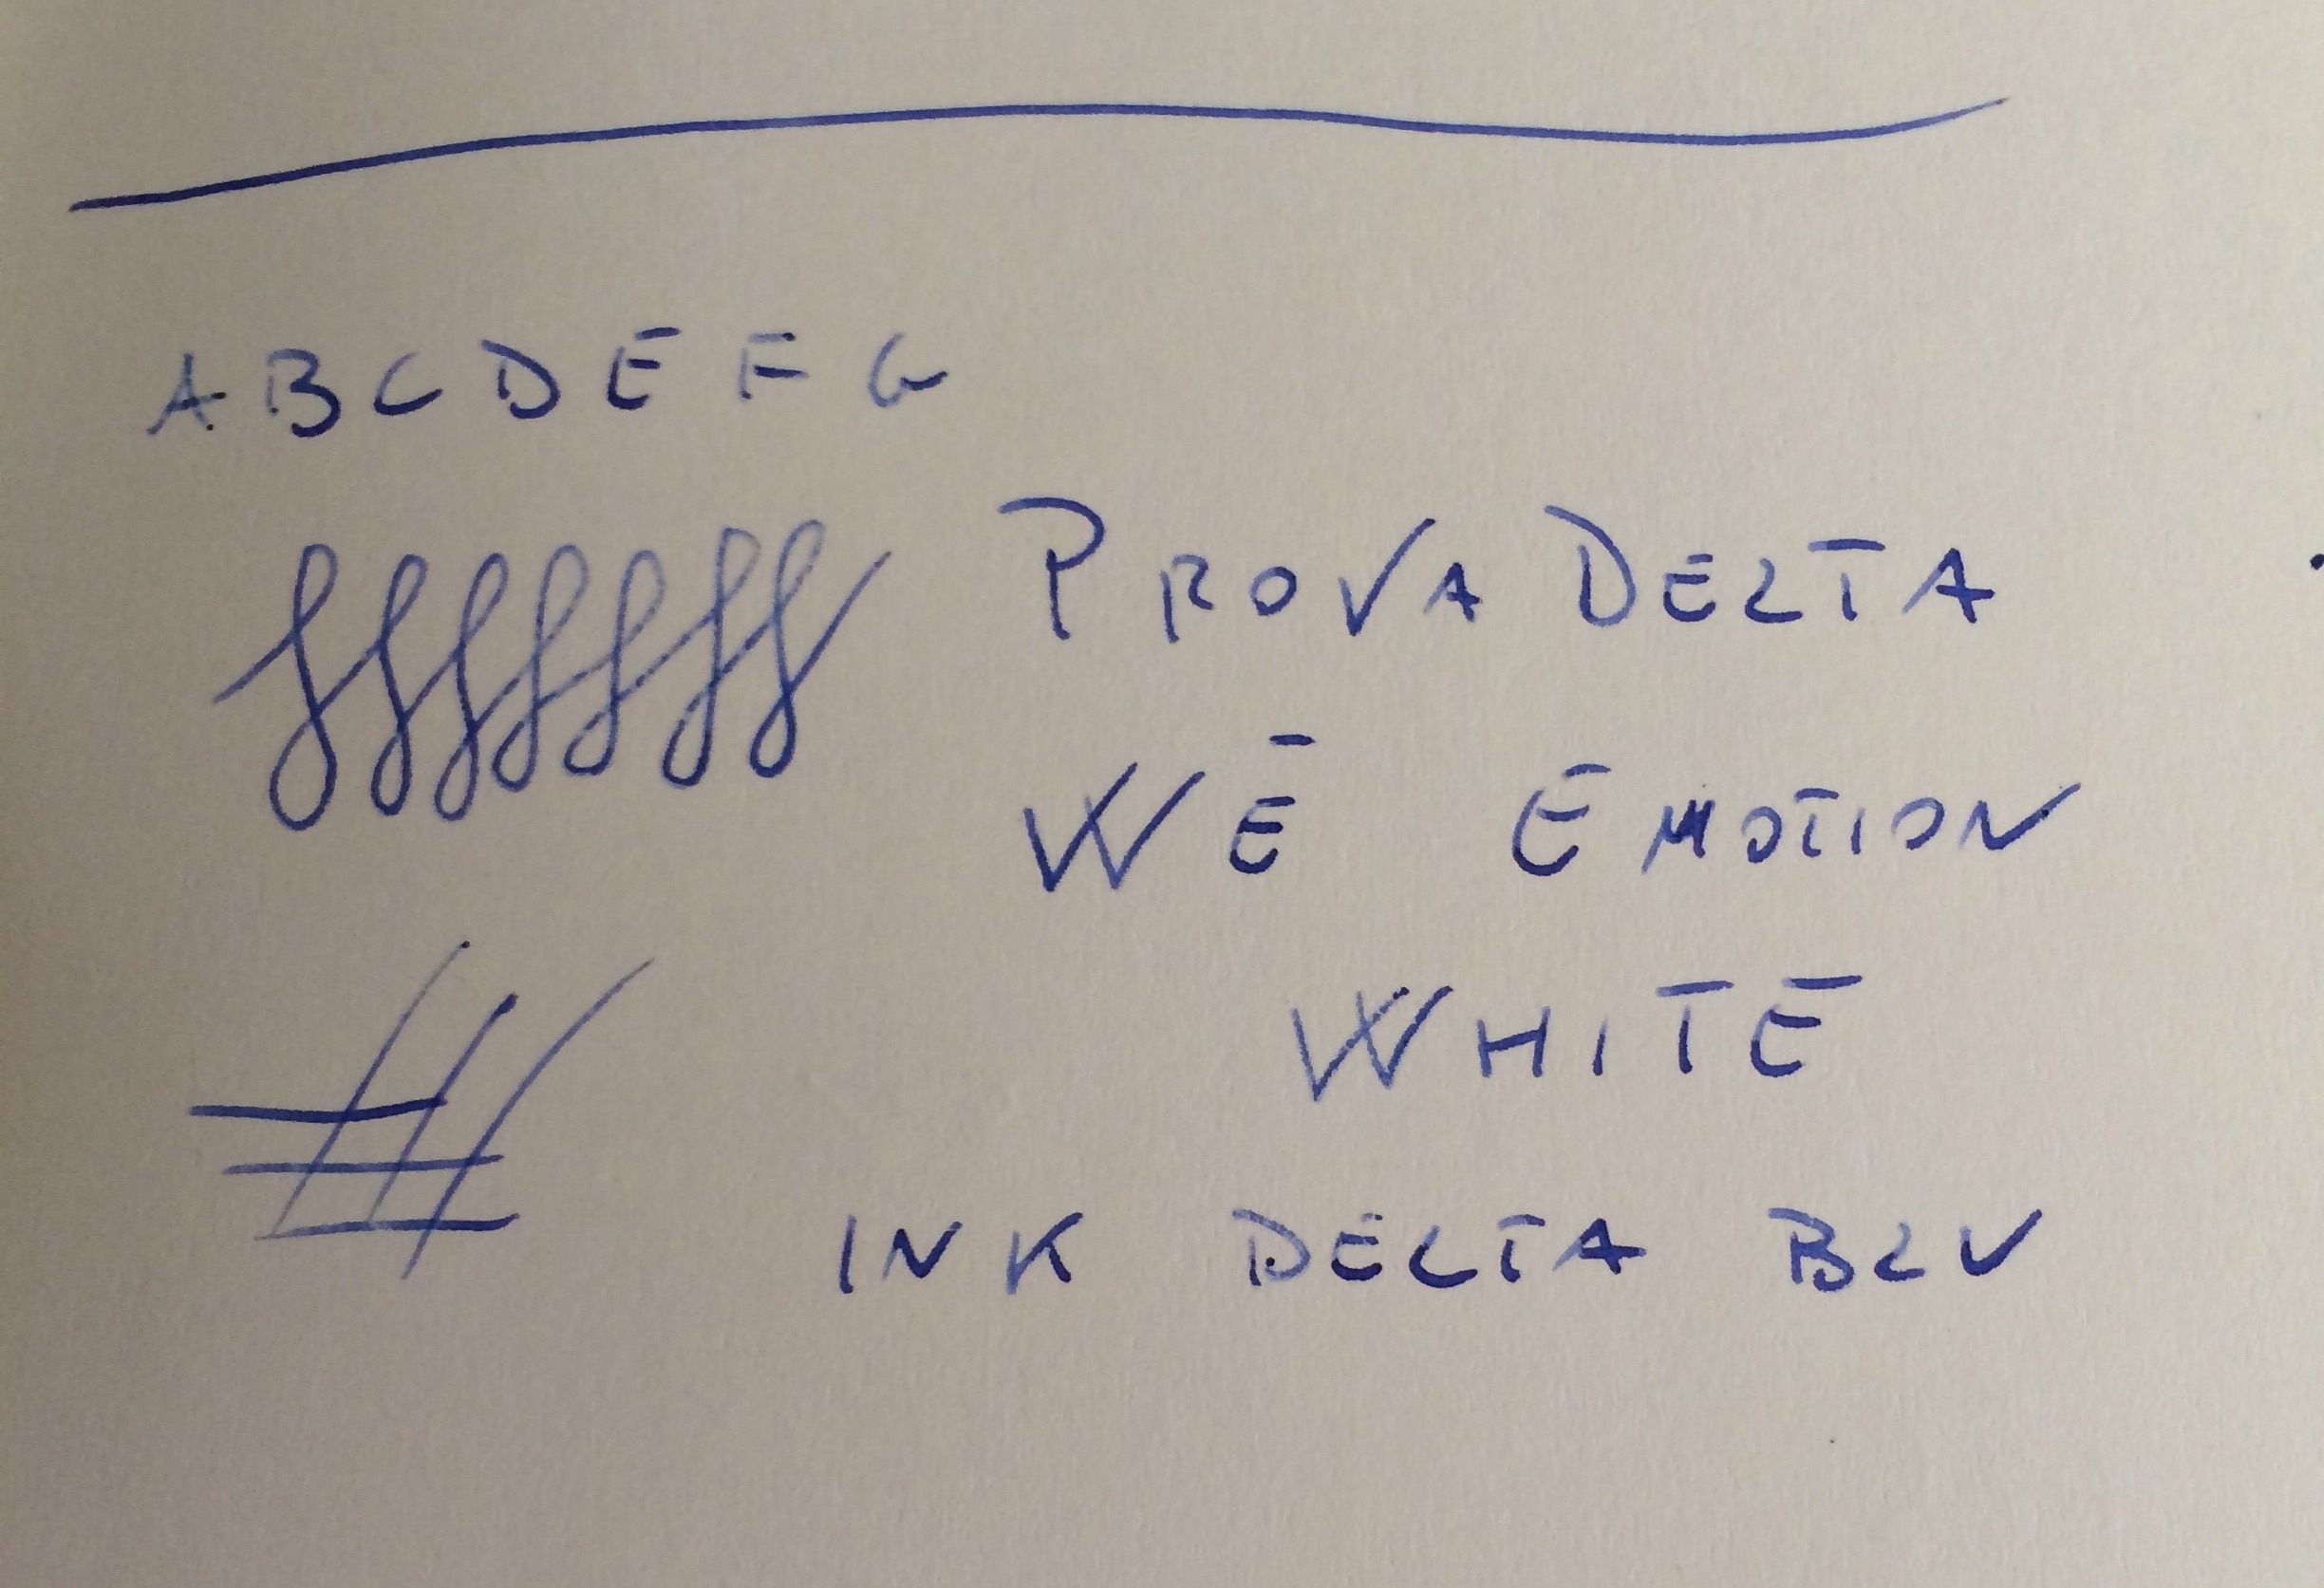 A B C D E F G
PROVA DELTA
WE EMOTION
WHITE
INK DELTA BLU